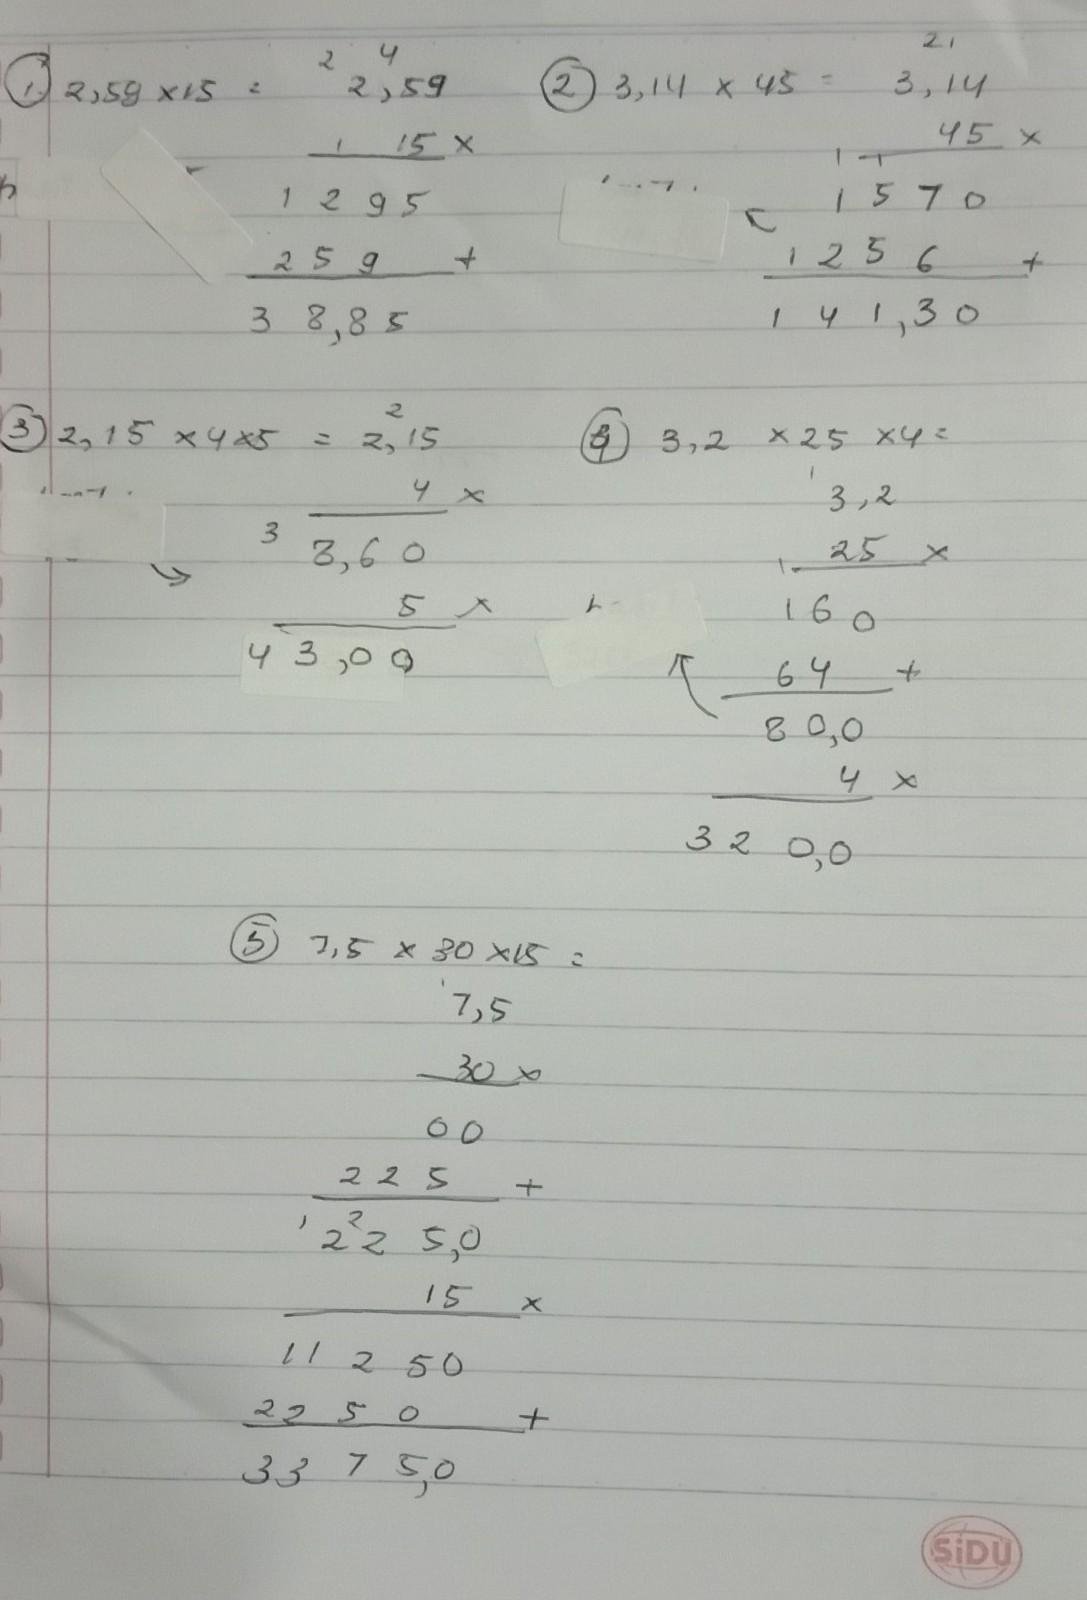 1. 2,59 x 15 =
2 4
2,59
1 15 x
1 2 9 5
2 5 9 +
3 8,8 5
2 3,14 x 45 =
2 1
3,14
45 x
1 1
1 5 7 0
1 2 5 6 +
1 4 1,3 0
3 2,15 x 4 x 5 =
2
2,15
4 x
3
8,6 0
5 x
4 3,0 0
4 3,2 x 25 x 4 =
1
3,2
25 x
1
1 6 0
6 4 +
8 0,0
4 x
3 2 0,0
5 7,5 x 30 x 15 =
1
7,5
30 x
0 0
2 2 5 +
1 2
2 2 5,0
15 x
1 1 2 5 0
2 2 5 0 +
3 3 7 5,0
SiDU